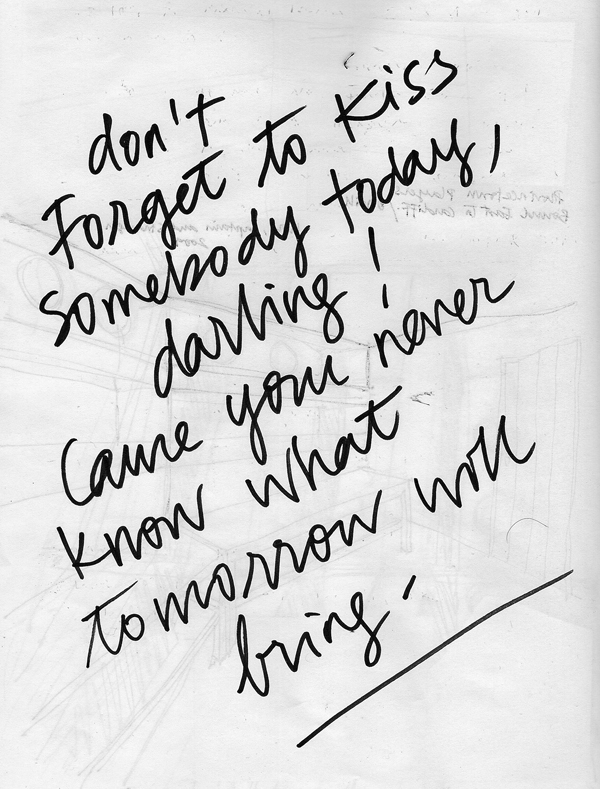 don't
Forget to kiss
somebody today,
darling!
Cause you never
know what
tomorrow will
bring.